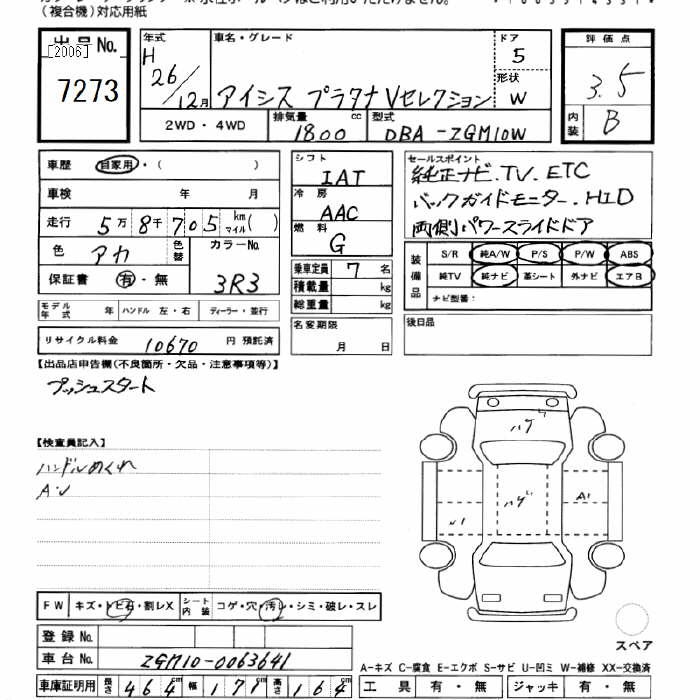 (複合機)対応用紙
出品No.
[2006]
7273
年式 H 26/12月
車名・グレード
アイシス プラタナ Vセレクション
ドア 5
形状 W
2WD・4WD
排気量 1800 cc
型式 DBA-ZGM10W
評価点
3.5
内装 B
車歴 自家用・( )
車検 年 月
走行 5万8千705 km マイル( )
色 アカ
色替
カラーNo. 3R3
保証書 有・無
モデル年式 年 ハンドル 左・右 ディーラー・並行
リサイクル料金 10670 円 預託済
シフト IAT
冷房 AAC
燃料 G
乗車定員 7 名
積載量 kg
総重量 kg
名変期限
月 日
セールスポイント
純正ナビ.TV.ETC
バックガイドモニター.HID
両側パワースライドドア
装備品
S/R 純A/W P/S P/W ABS
純TV 純ナビ 革シート 外ナビ エアB
ナビ型番:
後日品
【出品店申告欄(不良箇所・欠品・注意事項等)】
プッシュスタート
【検査員記入】
ハンドルめくれ
A・U
ハゲ
ハゲ
A1
U1
FW キズ・トビ石・割レX シート内装 コゲ・穴・汚レ・シミ・破レ・スレ
登録No.
車台No. ZGM10-0063641
車庫証明用 長さ 464cm 幅 171cm 高さ 164cm
スペア
A-キズ C-腐食 E-エクボ S-サビ U-凹ミ W-補修 XX-交換済
工具 有・無 ジャッキ 有・無